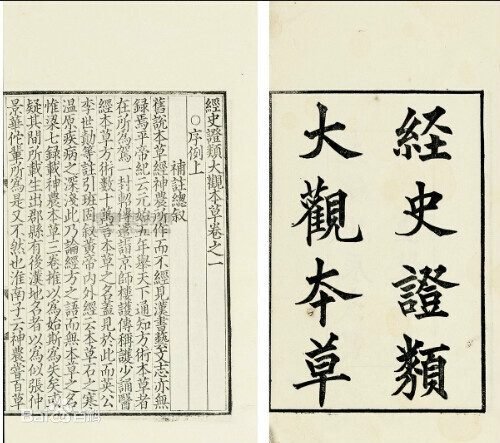 経史證類
大觀夲草
經史證類大觀本草卷之一
○序例上
補註總叙
舊說本草經神農所作而不經見漢書藝文志亦無
録焉平帝紀云元始五年舉天下通知方術本草者
在所為駕一封軺傳遣詣京師樓護傳稱護少誦醫
經本草方術數十萬言本草之名蓋見於此而英公
李世勣等註引班固叙黃帝內外經云本草石之寒
温原疾病之深淺此乃論經方之語而無本草之名
惟梁七録載神農本草三卷推以為始斯為失矣或
疑其間所載生出郡縣有後漢地名者以為似張仲
景華佗軰所為是又不然也淮南子云神農嘗百草
Baidu百科